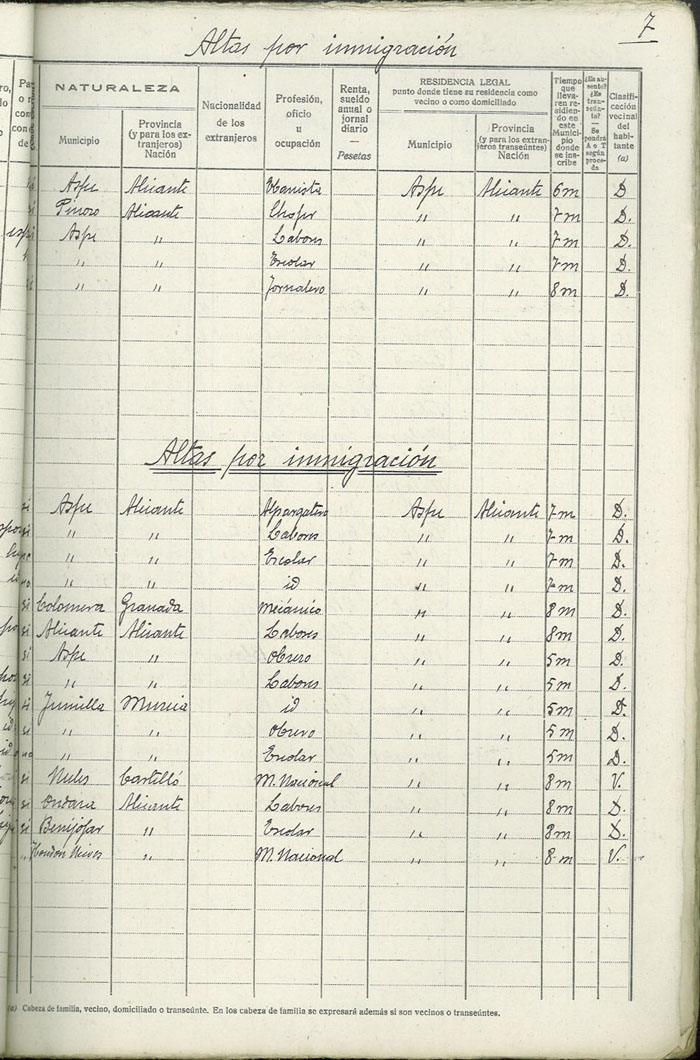 7
Altas por inmigración
NATURALEZA
Municipio
Provincia (y para los extranjeros) Nación
Nacionalidad de los extranjeros
Profesión, oficio u ocupación
Renta, sueldo anual o jornal diario — Pesetas
RESIDENCIA LEGAL
punto donde tiene su residencia como vecino o como domiciliado
Municipio
Provincia (y para los extranjeros transeúntes) Nación
Tiempo que llevaren residiendo en este Municipio donde se inscribe
¿Es ausente? ¿Es transeúnte? — Se pondrá A o T según proceda
Clasificación vecinal del habitante (a)
Aspe Alicante Aspe Alicante 6 m D
Pinoso Alicante Chofer " " 7 m D.
Aspe " Labores " " 7 m D.
" " Escolar " " 7 m D.
" " Jornalero " " 8 m D.
Altas por inmigración
si Aspe Alicante Alpargatero Aspe Alicante 7 m D.
si " " Labores " " 7 m D.
" " Escolar " " 7 m D.
" " id " " 7 m D.
si Colomera Granada Mecánico " " 8 m D.
si Alicante Alicante Labores " " 8 m D.
si Aspe " Obrero " " 5 m D.
si " " Labores " " 5 m D.
si Jumilla Murcia id " " 5 m D.
si " " Obrero " " 5 m D.
no " " Escolar " " 5 m D.
si Nules Castelló M. Nacional " " 8 m V.
si Ondara Alicante Labores " " 8 m D.
si Benijofar " Escolar " " 8 m D.
" Hondon Nieves " M. Nacional " " 8 m V.
(a) Cabeza de familia, vecino, domiciliado o transeúnte. En los cabeza de familia se expresará además si son vecinos o transeúntes.